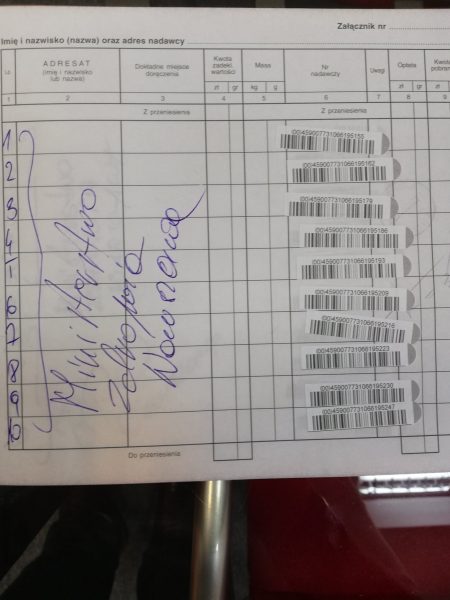 Załącznik nr
Imię i nazwisko (nazwa) oraz adres nadawcy
Ld. ADRESAT (imię i nazwisko lub nazwa) Dokładne miejsce doręczenia Kwota zadekl. wartości zł gr Masa kg g Nr nadawczy Uwagi Opłata zł gr Kwota pobran zł
1 2 3 4 5 6 7 8 9
Z przeniesienia Z przeniesienia
1 (00)459007731066195155
2 (00)459007731066195162
3 (00)459007731066195179
4 (00)459007731066195186
(00)459007731066195193
6 (00)459007731066195209
7 (00)459007731066195216
8 (00)459007731066195223
9 (00)459007731066195230
10 (00)459007731066195247
Ministerstwo
Zdrowia
Warszawa
Do przeniesienia